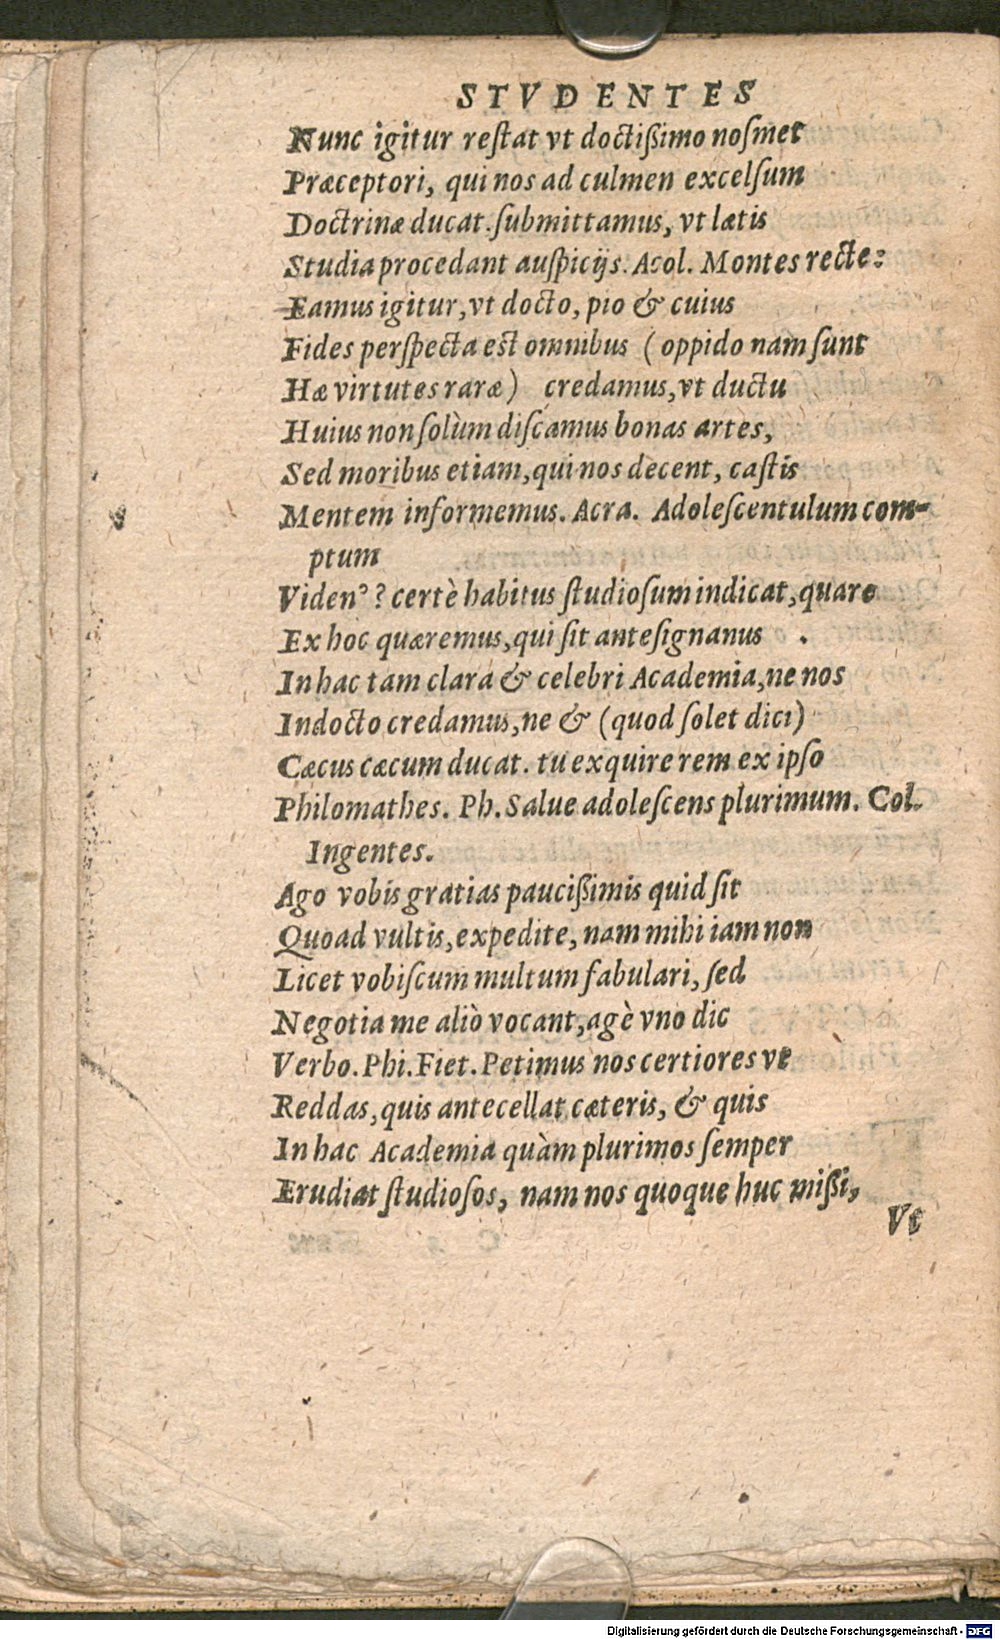 STVDENTES
Nunc igitur reſtat vt doctißimo noſmet
Præceptori, qui nos ad culmen excelſum
Doctrinæ ducat. ſubmittamus, vt lætis
Studia procedant auſpicijs. Acol. Montes recte:
Eamus igitur, vt docto, pio & cuius
Fides perſpecta est omnibus (oppido nam ſunt
Hæ virtutes raræ) credamus, vt ductu
Huius non ſolùm diſcamus bonas artes,
Sed moribus etiam, qui nos decent, caſtis
Mentem informemus. Acra. Adoleſcentulum com-
ptum
Viden'? certè habitus ſtudioſum indicat, quare
Ex hoc quæremus, qui ſit anteſignanus .
In hac tam clara & celebri Academia, ne nos
Indocto credamus, ne & (quod ſolet dici)
Cæcus cæcum ducat. tu exquire rem ex ipſo
Philomathes. Ph. Salue adoleſcens plurimum. Col.
Ingentes.
Ago vobis gratias paucißimis quid ſit
Quoad vultis, expedite, nam mihi iam non
Licet vobiſcum multum fabulari, ſed
Negotia me aliò vocant, agè vno dic
Verbo. Phi. Fiet. Petimus nos certiores vt
Reddas, quis antecellat cæteris, & quis
In hac Academia quàm plurimos ſemper
Erudiat ſtudioſos, nam nos quoque huc mißi,
Vt
Digitalisierung gefördert durch die Deutsche Forschungsgemeinschaft - DFG